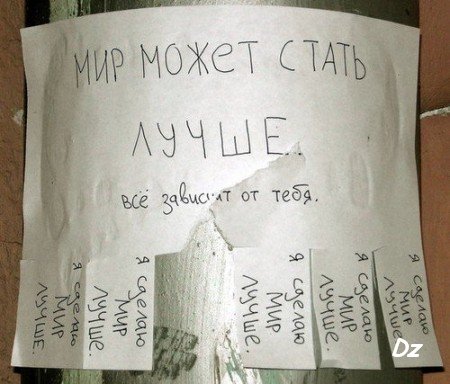 МИР МОЖЕТ СТАТЬ
ЛУЧШЕ..
всё зависит от тебя.
я сделаю
МИР
лучше.
я сделаю
МИР
лучше.
я сделаю
МИР
лучше.
я сделаю
МИР
лучше.
я сделаю
МИР
лучше.
Dz